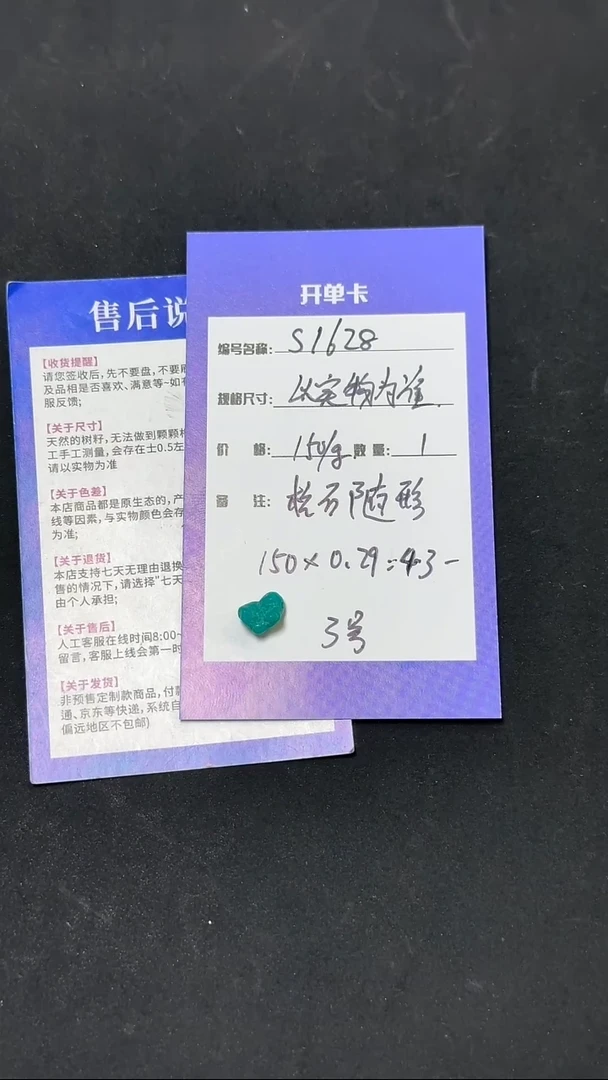 售后说
【收货提醒】
请您签收后,先不要盘,不要
及品相是否喜欢、满意等~如有
服反馈;
【关于尺寸】
天然的树籽,无法做到颗颗
工手工测量,会存在±0.5左
请以实物为准
【关于色差】
本店商品都是原生态的,产
线等因素,与实物颜色会存
为准;
【关于退货】
本店支持七天无理由退换
售的情况下,请选择"七天
由个人承担;
【关于售后】
人工客服在线时间8:00~
留言,客服上线会第一时
【关于发货】
非预售定制款商品,付款
通、京东等快递,系统自
偏远地区不包邮)
开单卡
编号名称: S1628
规格尺寸: 以实物为准.
价 格: 150/g 数量: 1
备 注: 随形
150×0.29=43-
3号